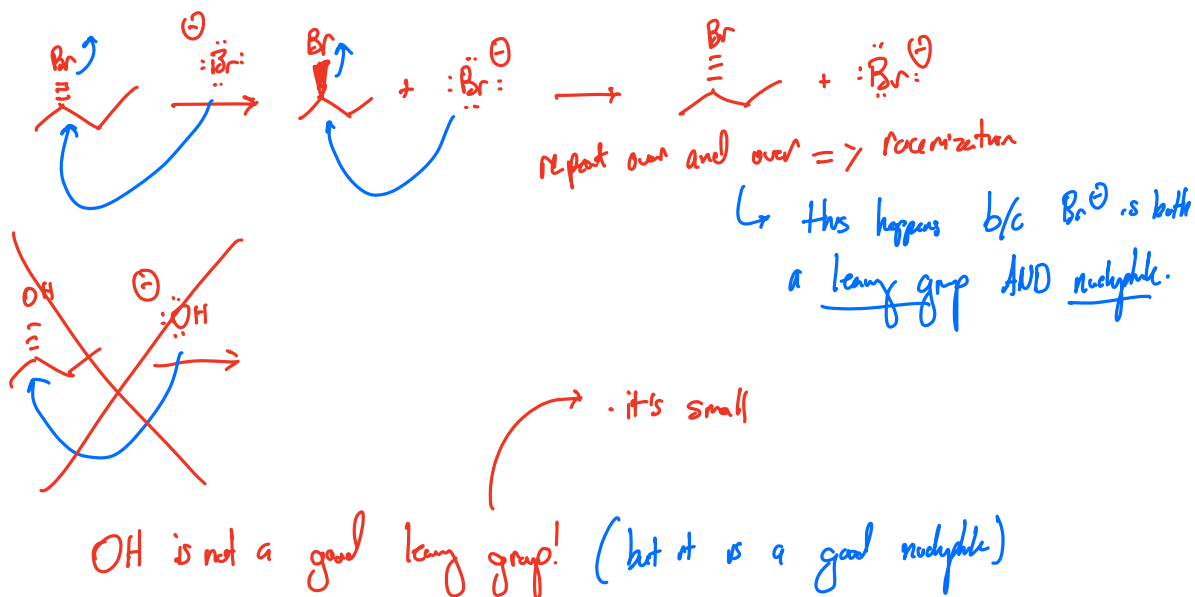 Br ⊖ :Br: Br + :Br: ⊖ Br + :Br: ⊖
repeat over and over => racemization
↳ this happens b/c Br⊖ is both
a leaving group AND nucleophile.
OH ⊖ :OH
· it's small
OH is not a good leaving group! (but it is a good nucleophile)